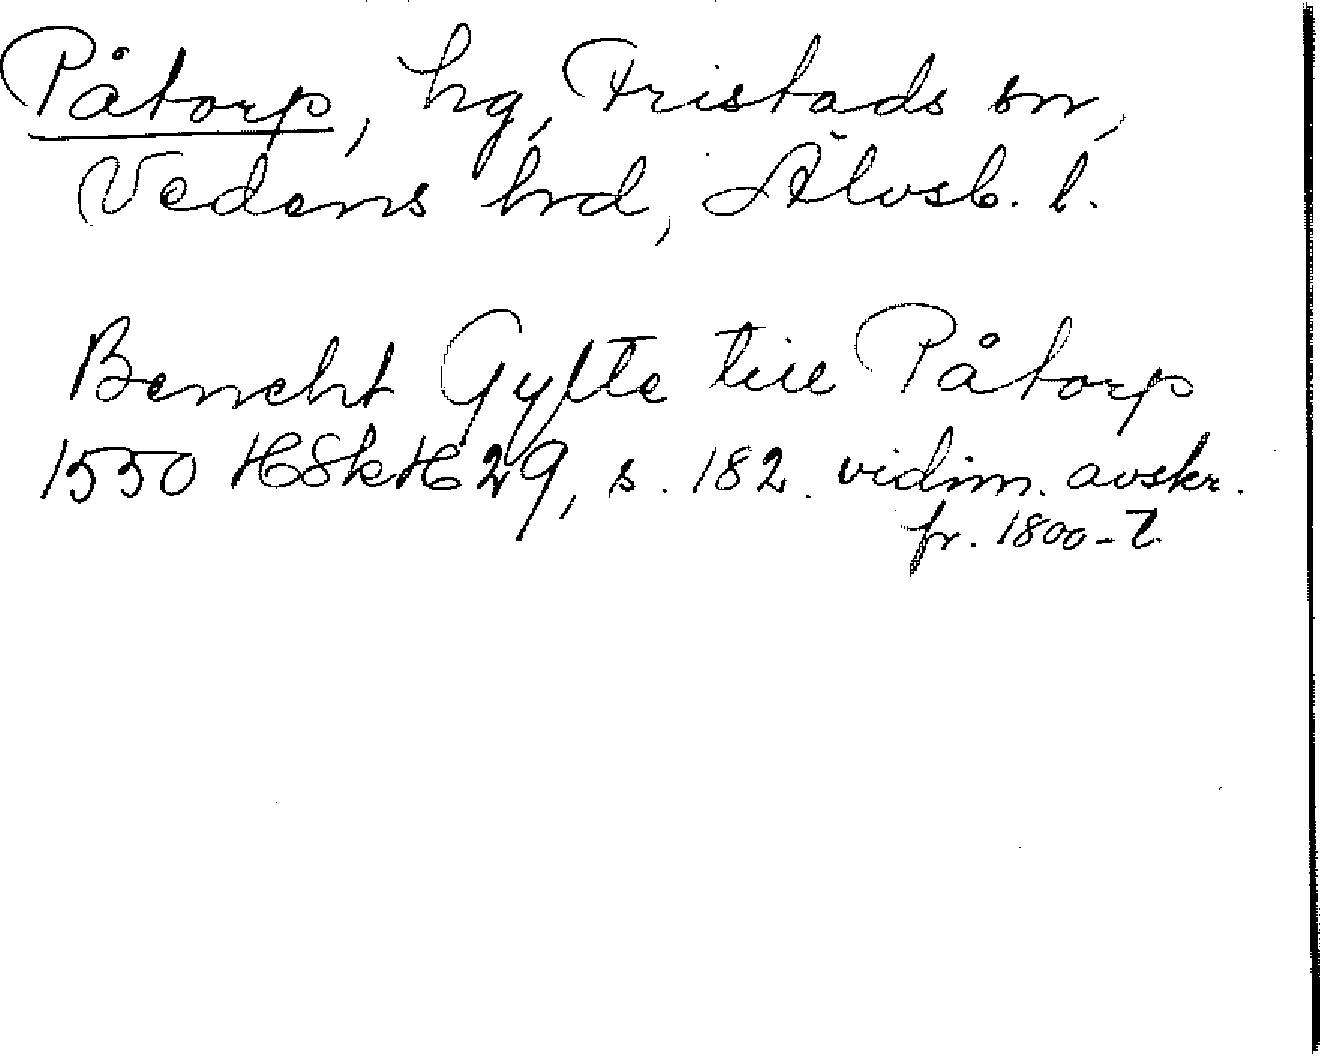 Påtorp, hg, Fristads sn,
Vedens hrd, Älvsb. l.
Bencht Gyltte till Påtorp
1550 HSkH 29, s. 182. vidim. avskr.
fr. 1800-t.